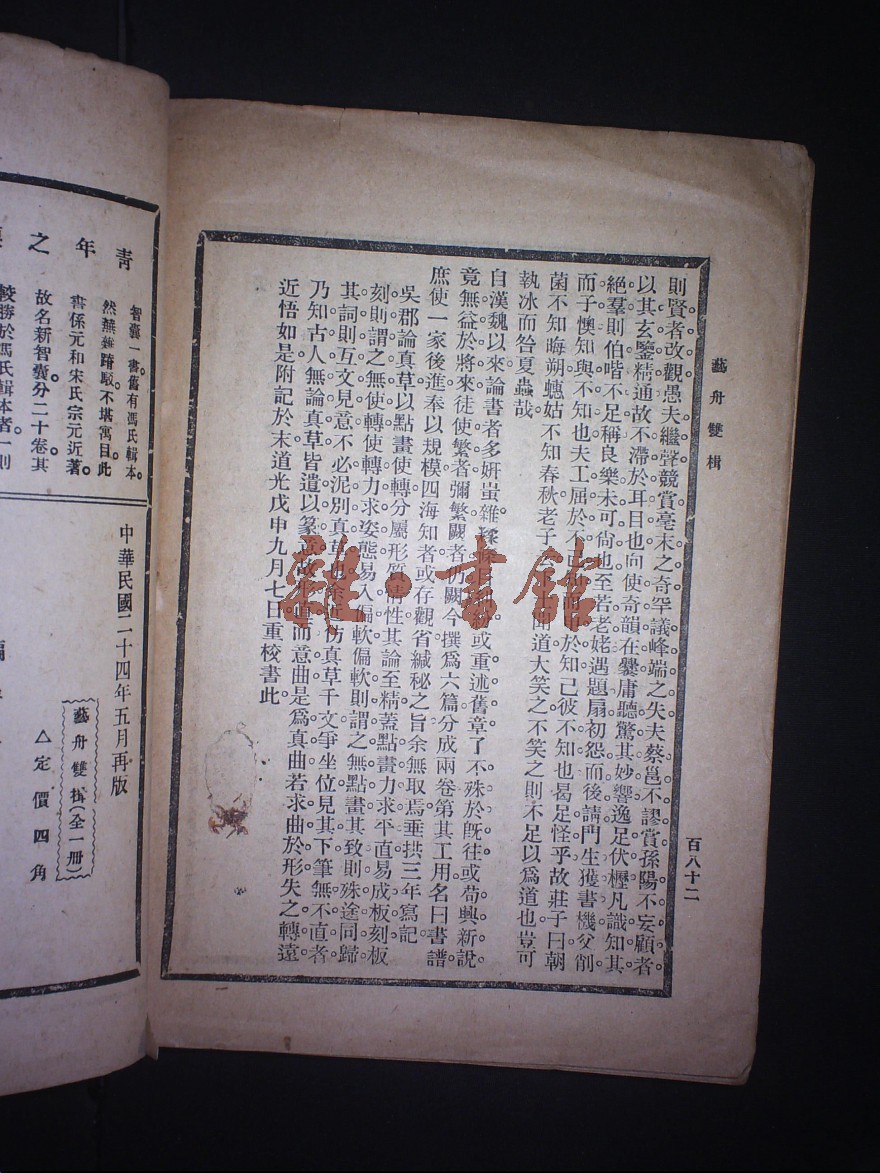 藝舟雙楫
百八十二
則賢者改觀愚夫繼聲競賞毫末之奇罕議峰端之失夫蔡邕不謬賞孫陽不妄顧者
以其玄鑒精通故不滯於耳目也向使奇韻在爨庸聽驚其妙響逸足伏櫪凡識知其
絕羣則伯喈不足稱良樂未可尙也至若老姥遇題扇初怨而後請門生獲書機父削
而子懊知與不知也夫工屈於不於知己彼不知也曷足怪乎故莊子曰朝
菌不知晦朔蟪姑不知春秋老子道大笑之不笑之則不足以爲道也豈可
執冰而咎夏蟲哉
自漢魏以來論書者多妍蚩雜糅或重述舊章了不殊於旣往或苟興新說
竟無益於將來徒使繁者彌繁闕者仍闕今撰爲六篇分成兩卷第其工用名曰書譜
庶使一家後進奉以規模四海知者或存觀省緘秘之旨余無取焉垂拱三年寫記
吳郡論真草以點畫使轉分屬形質情性其論至精蓋點畫力求平直易成板刻板
刻則謂之無使轉使轉力求姿態易入偏軟偏軟則謂之無點畫其致則殊途同歸
其詞則互文見意不必泥別真草也余近仿真草千文爭坐位見其下筆無不直者
乃知古人無論真草皆遺以篆意故形直而意曲是爲真曲若求曲於形失之轉遠
近悟如是附記於末道光戊申九月七日重校書此
雜·書館
青年之
智囊一書舊有馮氏輯本
然蕪雜踳駁不堪寓目此
書係元和宋氏宗元近著
故名新智囊分二十卷其
較勝於馮氏輯本者一則
中華民國二十四年五月再版
藝舟雙楫(全一冊)
△定價四角